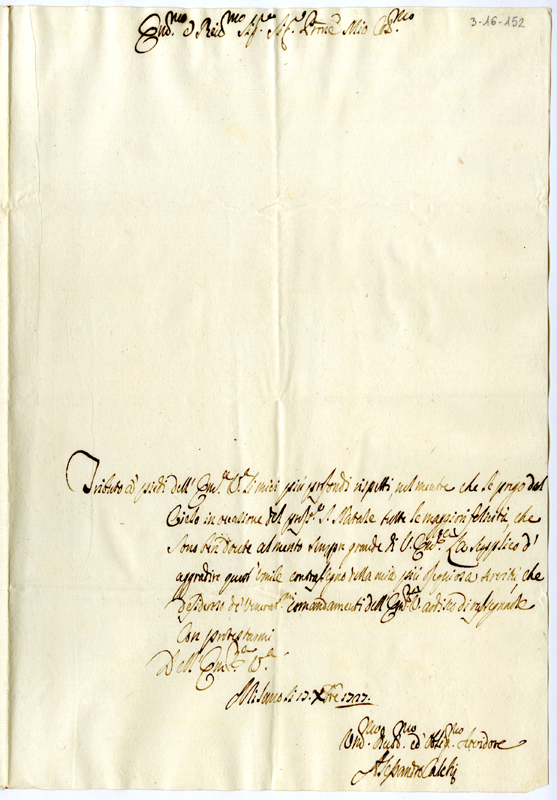 3-16-152
Em.mo e Re.mo Sig.r Sig.r Prone Mio Col.mo
Tributo a' piedi dell' Em.a V.a li miei più profondi rispetti nel mentre che le prego dal
Cielo in occasione del pross.o S. Natale tutte le maggiori felicità, che
sono ben dovute al merito sempre grande di V. Em.a La supplico d'
aggradire quest' umile contrasegno della mia più ossequiosa servitù, che
desiderosa de' venerat.mi comandamenti dell' Em.a V.a ardisce di rassegnarle
con protestarmi
Dell' Em.a V.a
Milano li 17. Xbre 1727.
Um.mo Dev.mo ed Obblig.mo Servidore
Alessandro Calchi